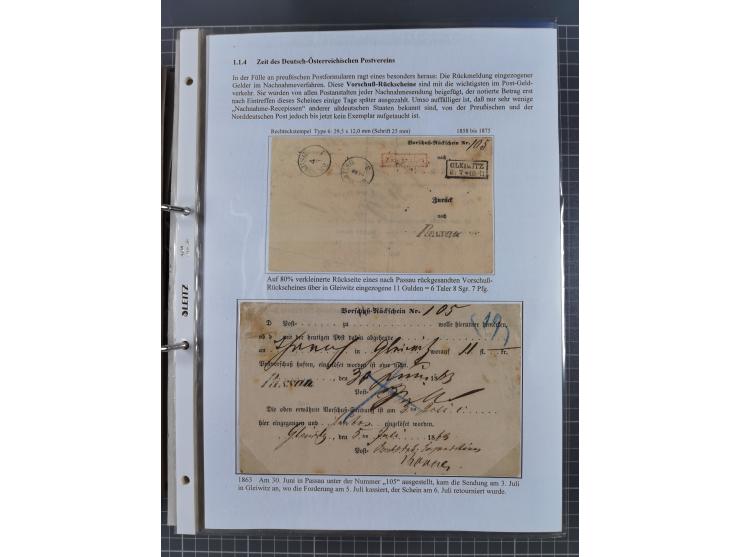 1.1.4 Zeit des Deutsch-Österreichischen Postvereins
In der Fülle an preußischen Postformularen ragt eines besonders heraus: Die Rückmeldung eingezogener
Gelder im Nachnahmeverfahren. Diese Vorschuß-Rückscheine sind mit die wichtigsten im Post-Geld-
verkehr. Sie wurden von allen Postanstalten jeder Nachnahmesendung beigefügt, der notierte Betrag erst
nach Eintreffen dieses Scheines einige Tage später ausgezahlt. Umso auffälliger ist, daß nur sehr wenige
„Nachnahme-Recepissen" anderer altdeutschen Staaten bekannt sind, von der Preußischen und der
Norddeutschen Post jedoch bis jetzt kein Exemplar aufgetaucht ist.
Rechteckstempel Type 6: 29,5 x 12,0 mm (Schrift 23 mm) 1858 bis 1875
Vorschuß-Rückschein Nr. 105
nach
GLEIWITZ
Zurück
nach
Passau
Auf 80% verkleinerte Rückseite eines nach Passau rückgesandten Vorschuß-
Rückscheines über in Gleiwitz eingezogene 11 Gulden = 6 Taler 8 Sgr. 7 Pfg.
LEITZ
Vorschuß-Rückschein Nr. 105
D Post- zu wolle hierunter bemerken,
ob d mit der heutigen Post dahin abgehende
an in Gleiwitz worauf 11 fl. — kr.
Postvorschuß haften, eingelöset worden ist oder nicht.
Passau, den 30 Juni 1863
Post-
Die oben erwähnte Vorschuß-Sendung ist am 3 Juli c.
hier eingegangen und eingelöset worden.
Gleiwitz, den 5 Juli 1863
Post- Expedition
1863 Am 30. Juni in Passau unter der Nummer „105" ausgestellt, kam die Sendung am 3. Juli
in Gleiwitz an, wo die Forderung am 5. Juli kassiert, der Schein am 6. Juli retourniert wurde.